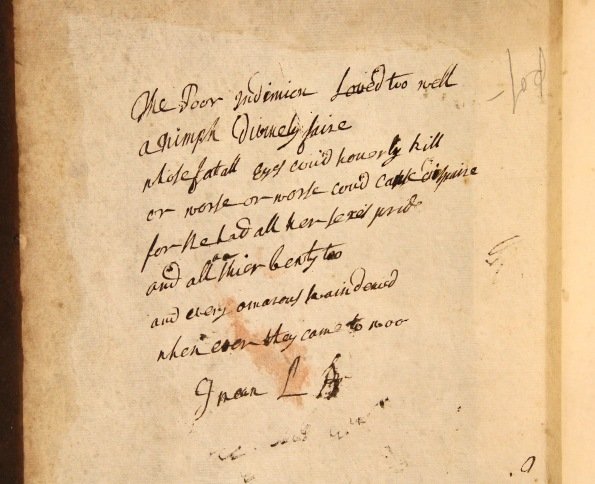 The Poor Indimion Loved too well
a Nimph Divinely faire
whose fatall Eyes could hourly kill
or worse or worse could cause dispaire
for she had all her sexes pride
and all thier beuty too
and every amarous swain denied
when ever they came to woo
I mean L